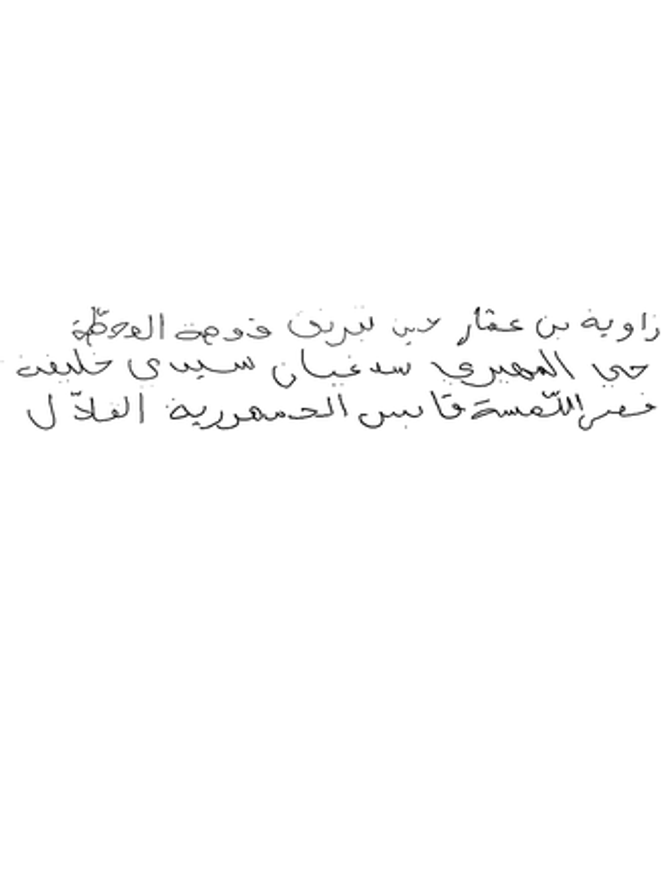 زاوية بن عمّار عين تبرنق قدوحة المحطّة
حي المهيري سد غيلان سيدي خليف
قصر اللّمسة قابس الجمهورية الفلاّل